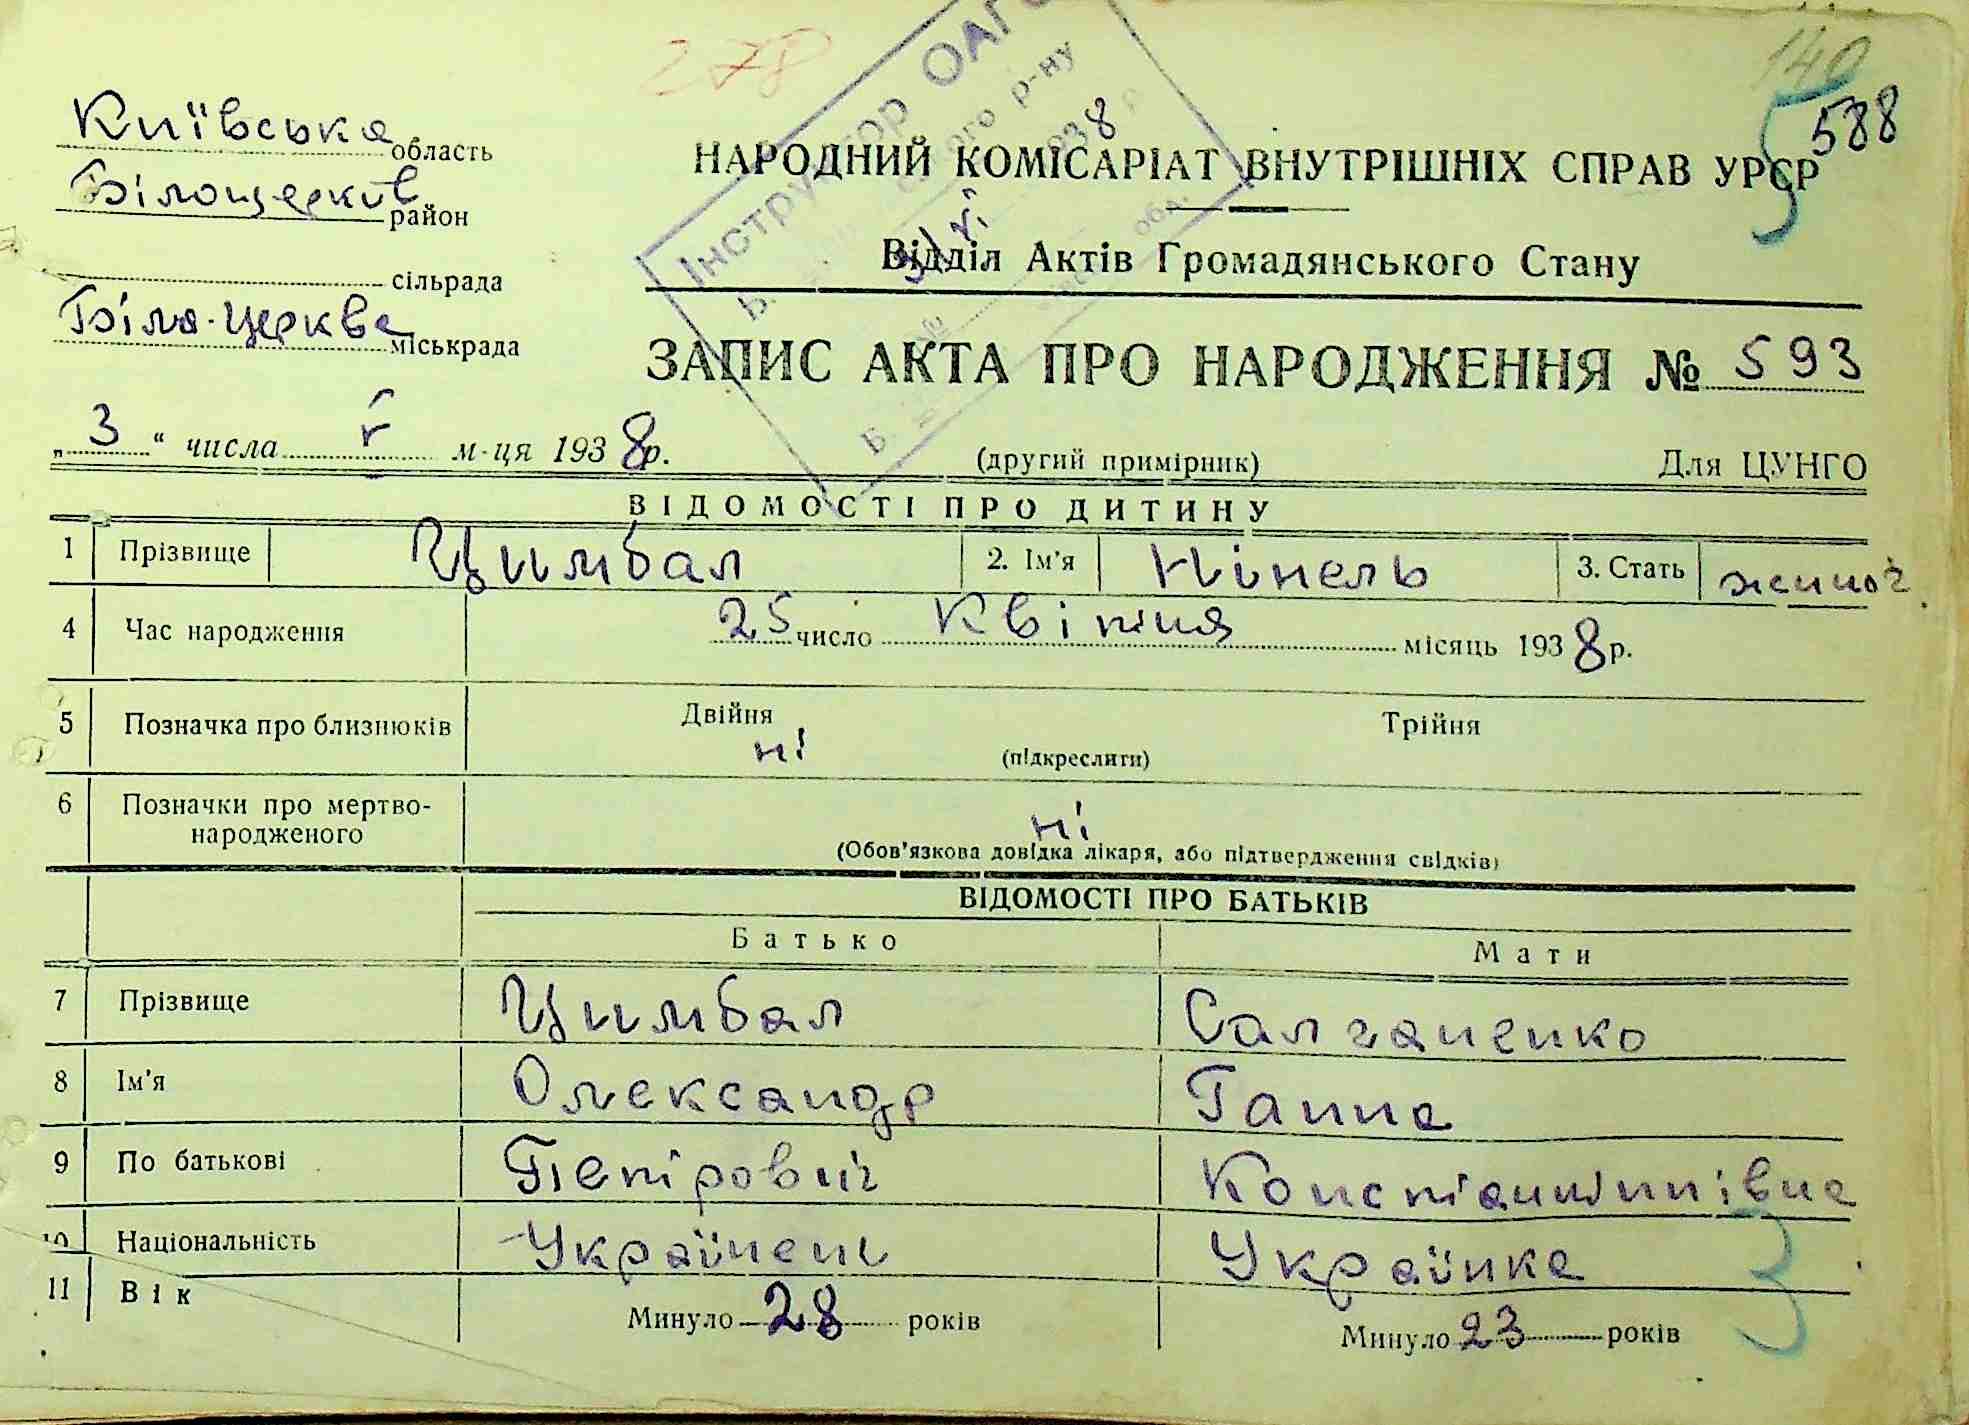 278
140
588
Київська область
Білоцерків район
сільрада
Біла-Церква міськрада
Інструктор ОАГС
р-ну
1938 р
обл.
НАРОДНИЙ КОМІСАРІАТ ВНУТРІШНІХ СПРАВ УРСР
Відділ Актів Громадянського Стану
ЗАПИС АКТА ПРО НАРОДЖЕННЯ № 593
„3“ числа V м-ця 1938р.
(другий примірник)
Для ЦУНГО
ВІДОМОСТІ ПРО ДИТИНУ
1 Прізвище Цимбал 2. Ім'я Нінель 3. Стать жіноч.
4 Час народження 25 число Квітня місяць 1938р.
5 Позначка про близнюків Двійня Трійня
ні
(підкреслити)
6 Позначки про мертво-
народженого
ні
(Обов'язкова довідка лікаря, або підтвердження свідків)
ВІДОМОСТІ ПРО БАТЬКІВ
Батько Мати
7 Прізвище Цимбал Салганенко
8 Ім'я Олександр Ганна
9 По батькові Петрович Константинівна
10 Національність Українець Українка
11 Вік Минуло 28 років Минуло 23 років